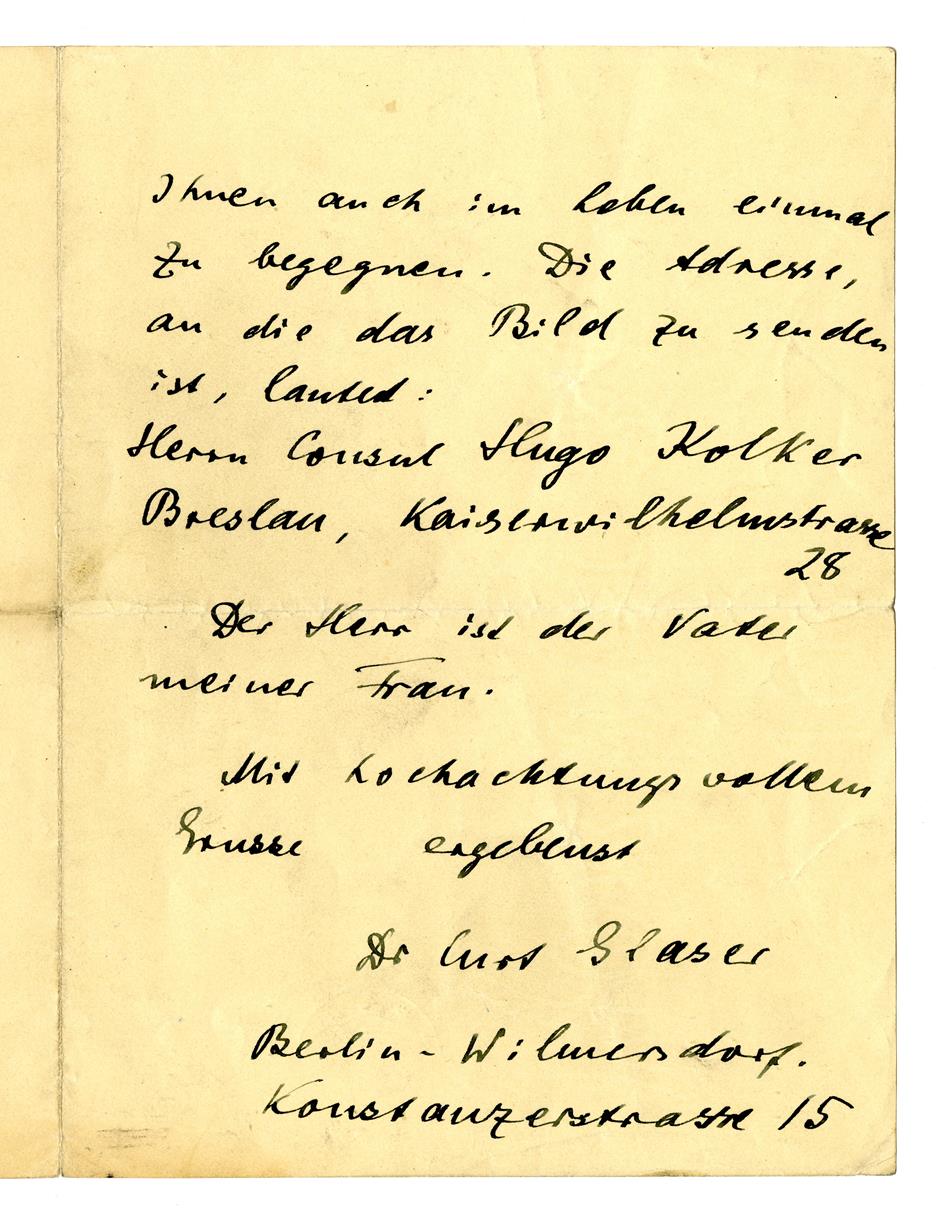 Ihnen auch im Leben einmal
zu begegnen. Die Adresse,
an die das Bild zu senden
ist, lautet:
Herrn Consul Hugo Kolker
Breslau, Kaiserwilhelmstrasse
28
Der Herr ist der Vater
meiner Frau.
Mit hochachtungsvollem
Grusse ergebenst
Dr Curt Glaser
Berlin - Wilmersdorf.
Konstanzerstrasse 15